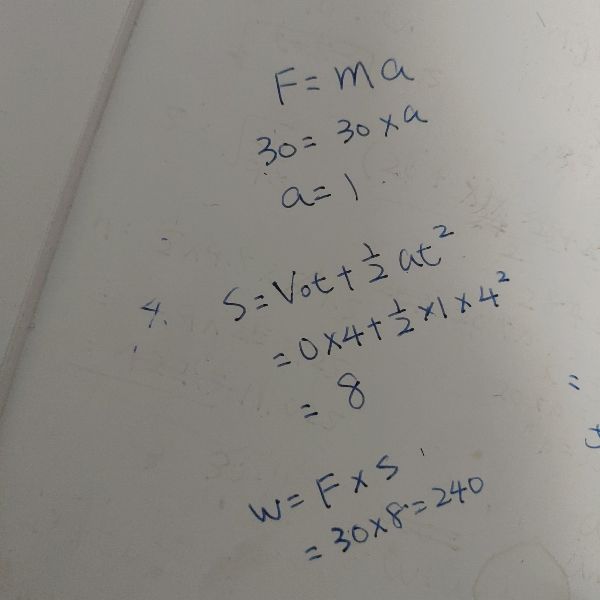 F = ma
30 = 30 × a
a = 1
S = V₀t + ½ at²
= 0 × 4 + ½ × 1 × 4²
= 8
W = F × S
= 30 × 8 = 240